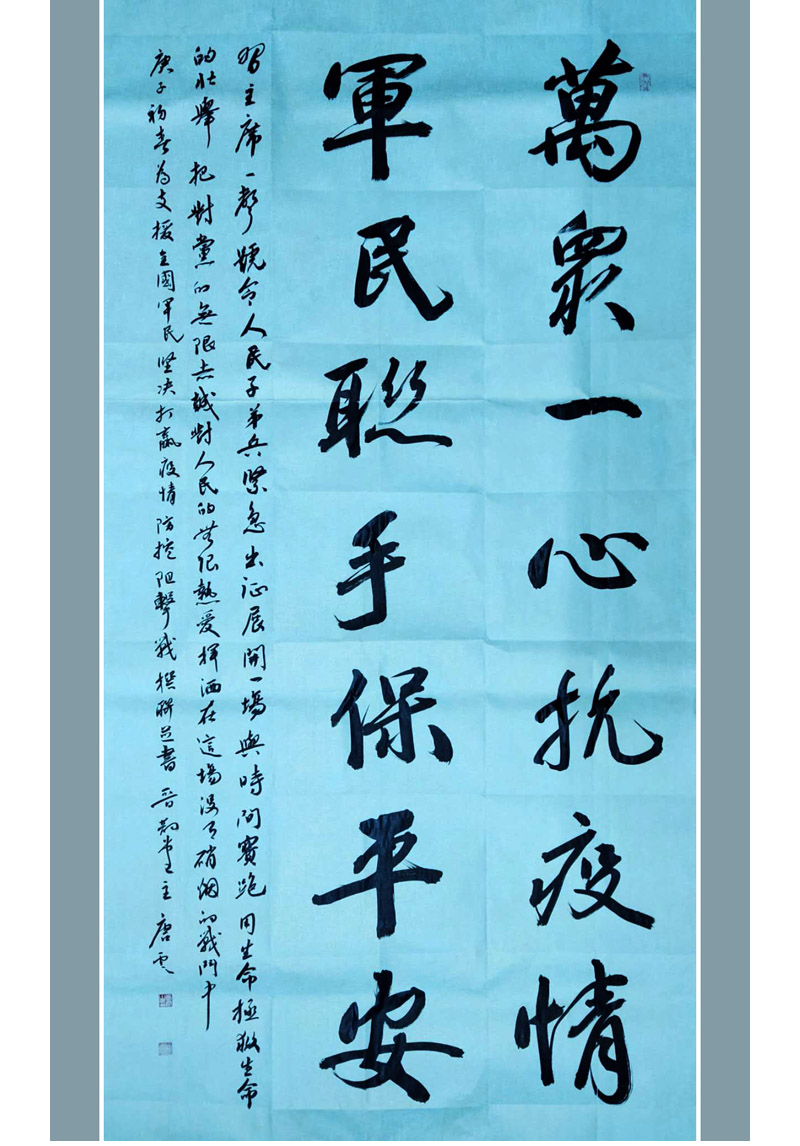 萬眾一心抗疫情
軍民聯手保平安
習主席一聲號令人民子弟兵緊急出征展開一場與時间賽跑用生命極救生命
的壮舉把對黨的無限忠誠對人民的無限熱愛揮洒在這場没有硝烟的戰鬥中
庚子初春為支援全國军民坚决打贏疫情防控阻擊戰撰联并書晋勤堂主唐雲